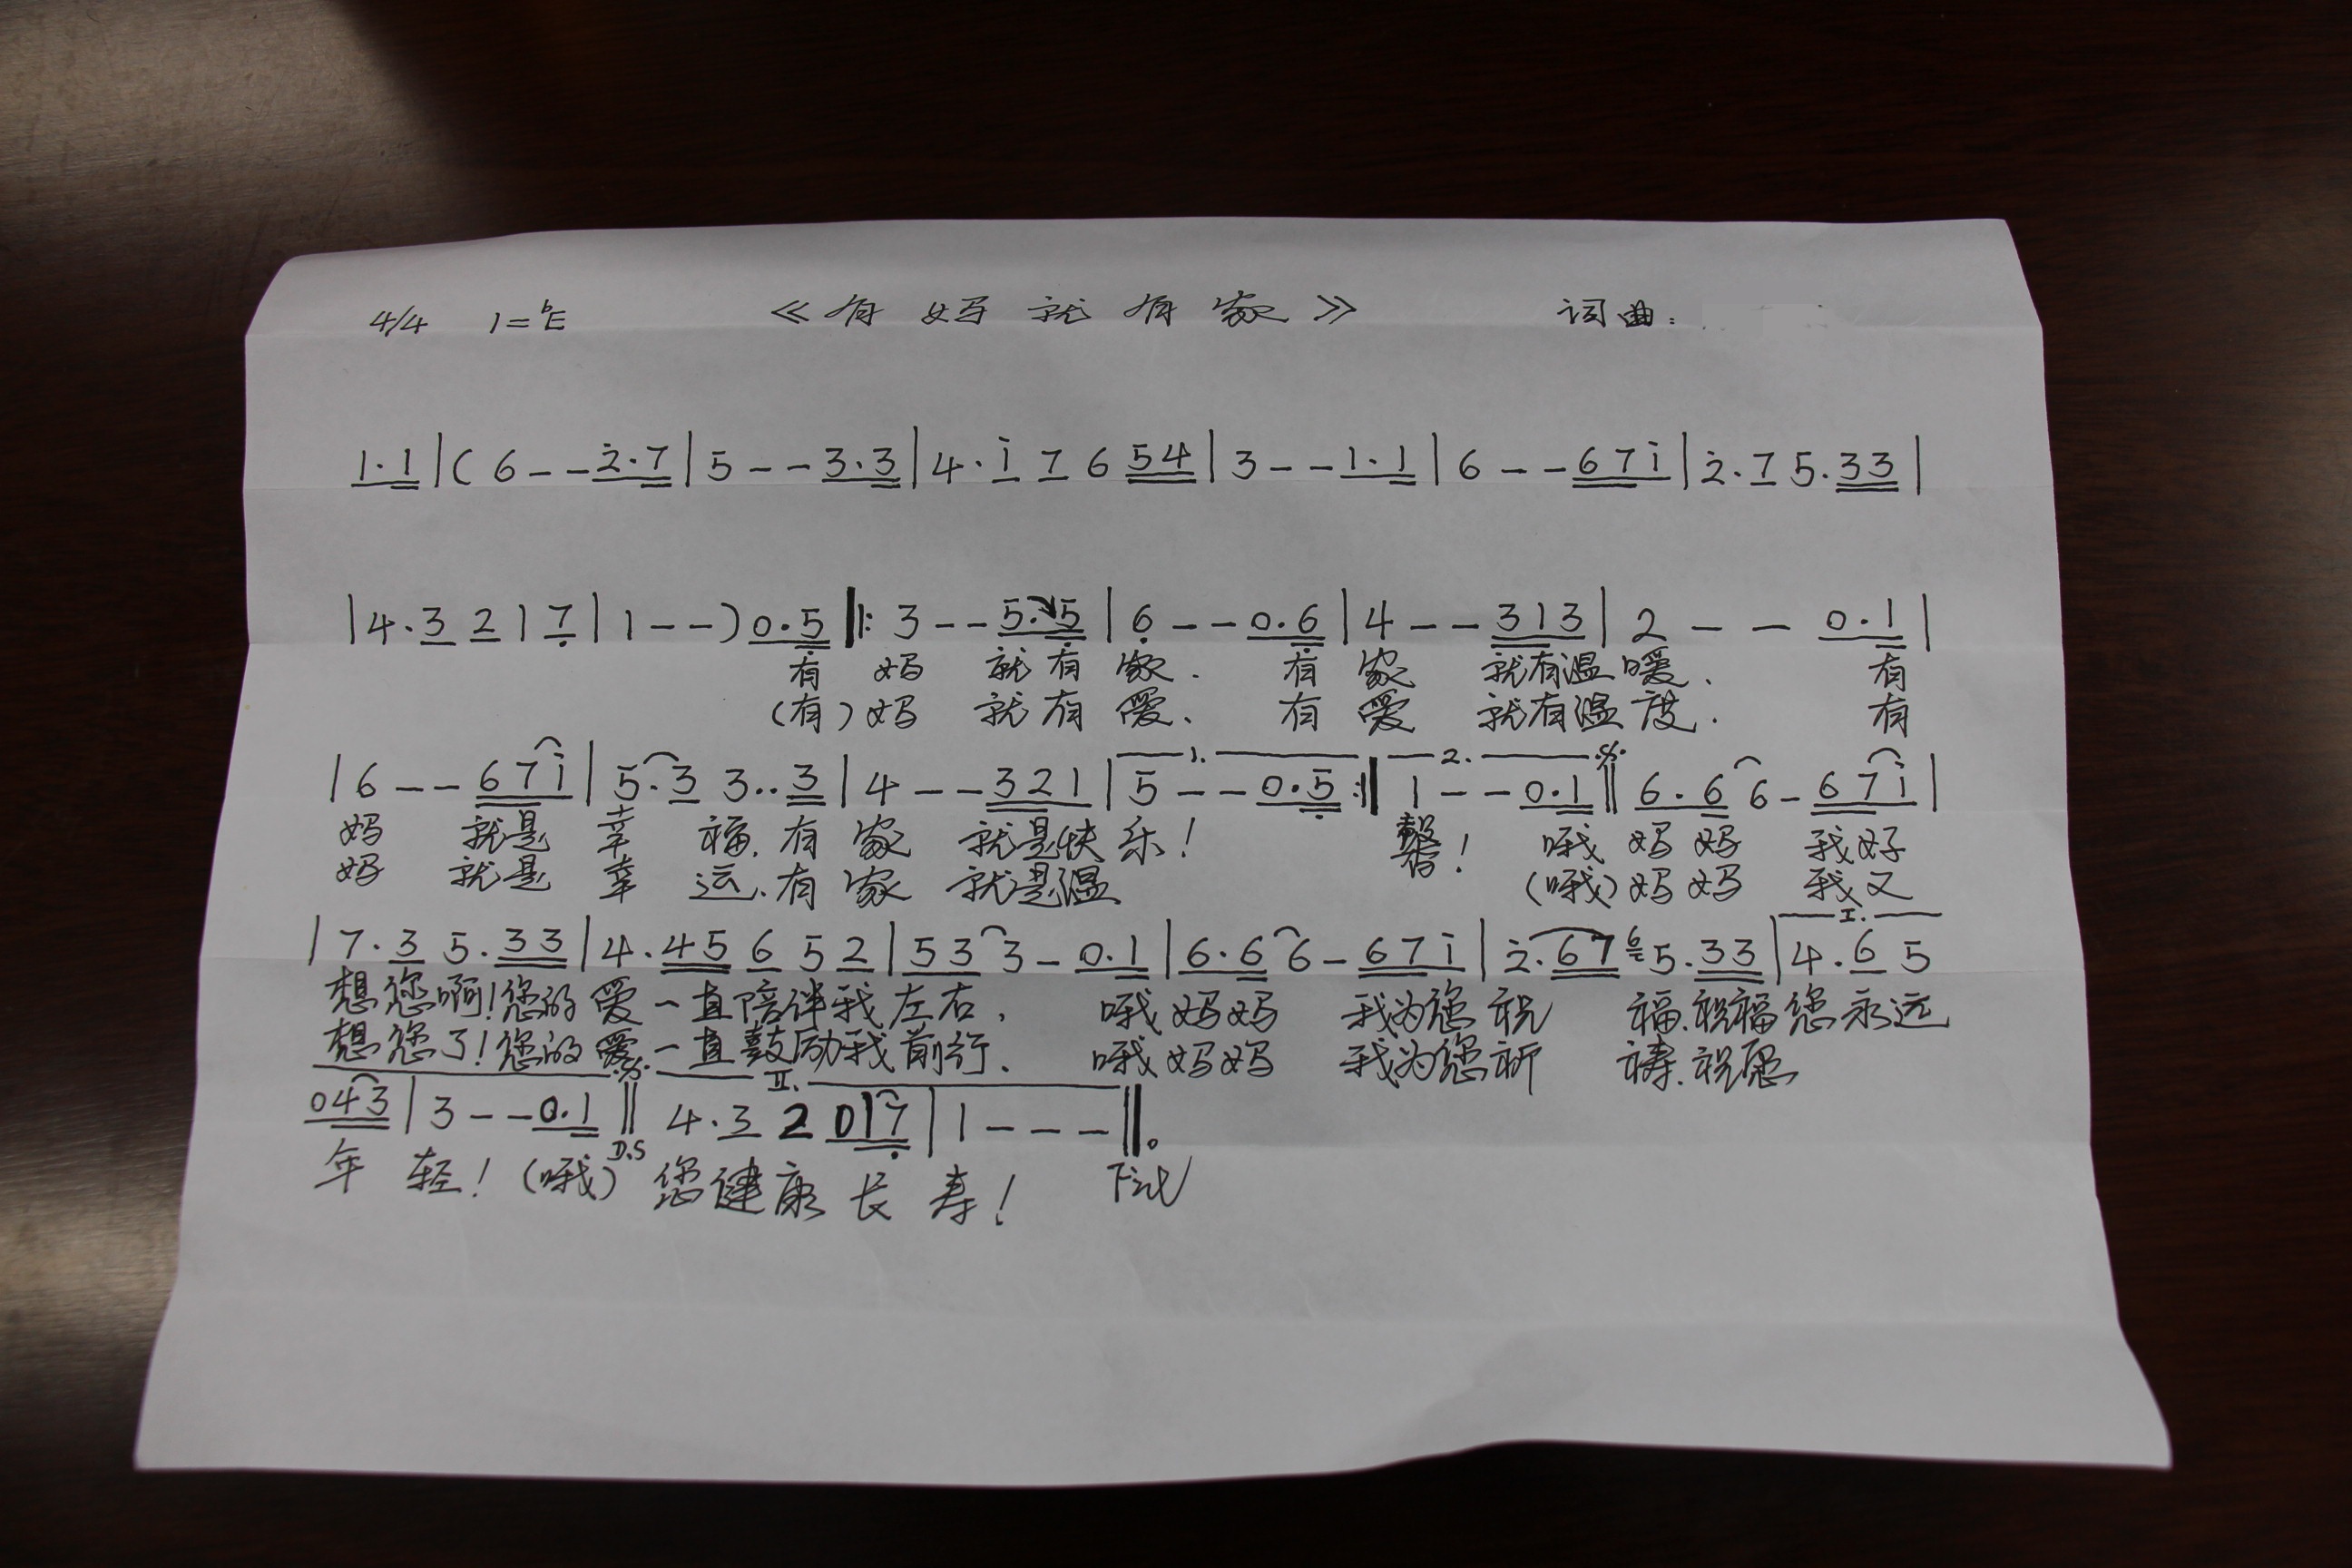 4/4 1=ᵇE 《有妈就有家》 词曲:
1·1|(6--2·7|5--3·3|4·i 7 6 54|3--1·1|6--67i|2·7 5·33|
|4·3 2 1 7|1--)0·5‖:3--5·5|6--0·6|4--313|2--0·1|
有 妈 就有家. 有家 就有温暖. 有
(有)妈 就有爱. 有爱 就有温度. 有
1. 2. 𝄋
|6--67i|5·3 3··3|4--321|5--0·5:‖1--0·1‖6·6 6-67i|
妈 就是幸 福.有家 就是快乐! 馨! 哦妈妈 我好
妈 就是幸 运.有家 就是温 (哦)妈妈 我又
I.
|7·3 5·33|4·45 6 5 2|53 3-0·1|6·6 6-67i|2·67 6 5·33|4·6 5
想您啊!您的爱一直陪伴我左右. 哦妈妈 我为您祝 福.祝福您永远
想您了!您的爱一直鼓励我前行. 哦妈妈 我为您祈 祷.祝愿
𝄋 II.
043|3--0·1‖4·3 2 017|1---‖。
D.S
年轻!(哦) 您健康长寿!